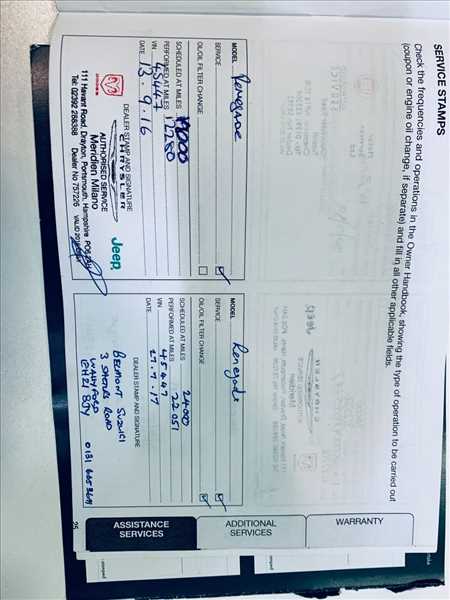 SERVICE STAMPS
Check the frequencies and operations in the Owner Handbook, showing the type of operation to be carried out
(coupon or engine oil change, if separate) and fill in all other applicable fields.
MODEL Renegade
SERVICE
OIL/OIL FILTER CHANGE
SCHEDULED AT MILES
PERFORMED AT MILES 12780
VIN 45447
DATE 13.9.16
DEALER STAMP AND SIGNATURE
CHRYSLER
Jeep
AUTHORISED SERVICE
Meridien Milano
111 Havant Road, Drayton, Portsmouth, Hampshire
Tel: 02392 288388 Dealer No 757226
MODEL Renegade
SERVICE
OIL/OIL FILTER CHANGE
SCHEDULED AT MILES 24000
PERFORMED AT MILES 22051
VIN 45447
DATE 27.7.17
DEALER STAMP AND SIGNATURE
BELMONT SUZUKI
WALLYFORD
EH21
25
ASSISTANCE
SERVICES
ADDITIONAL
SERVICES
WARRANTY